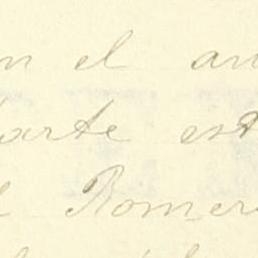 n el an
arte est
l Romer